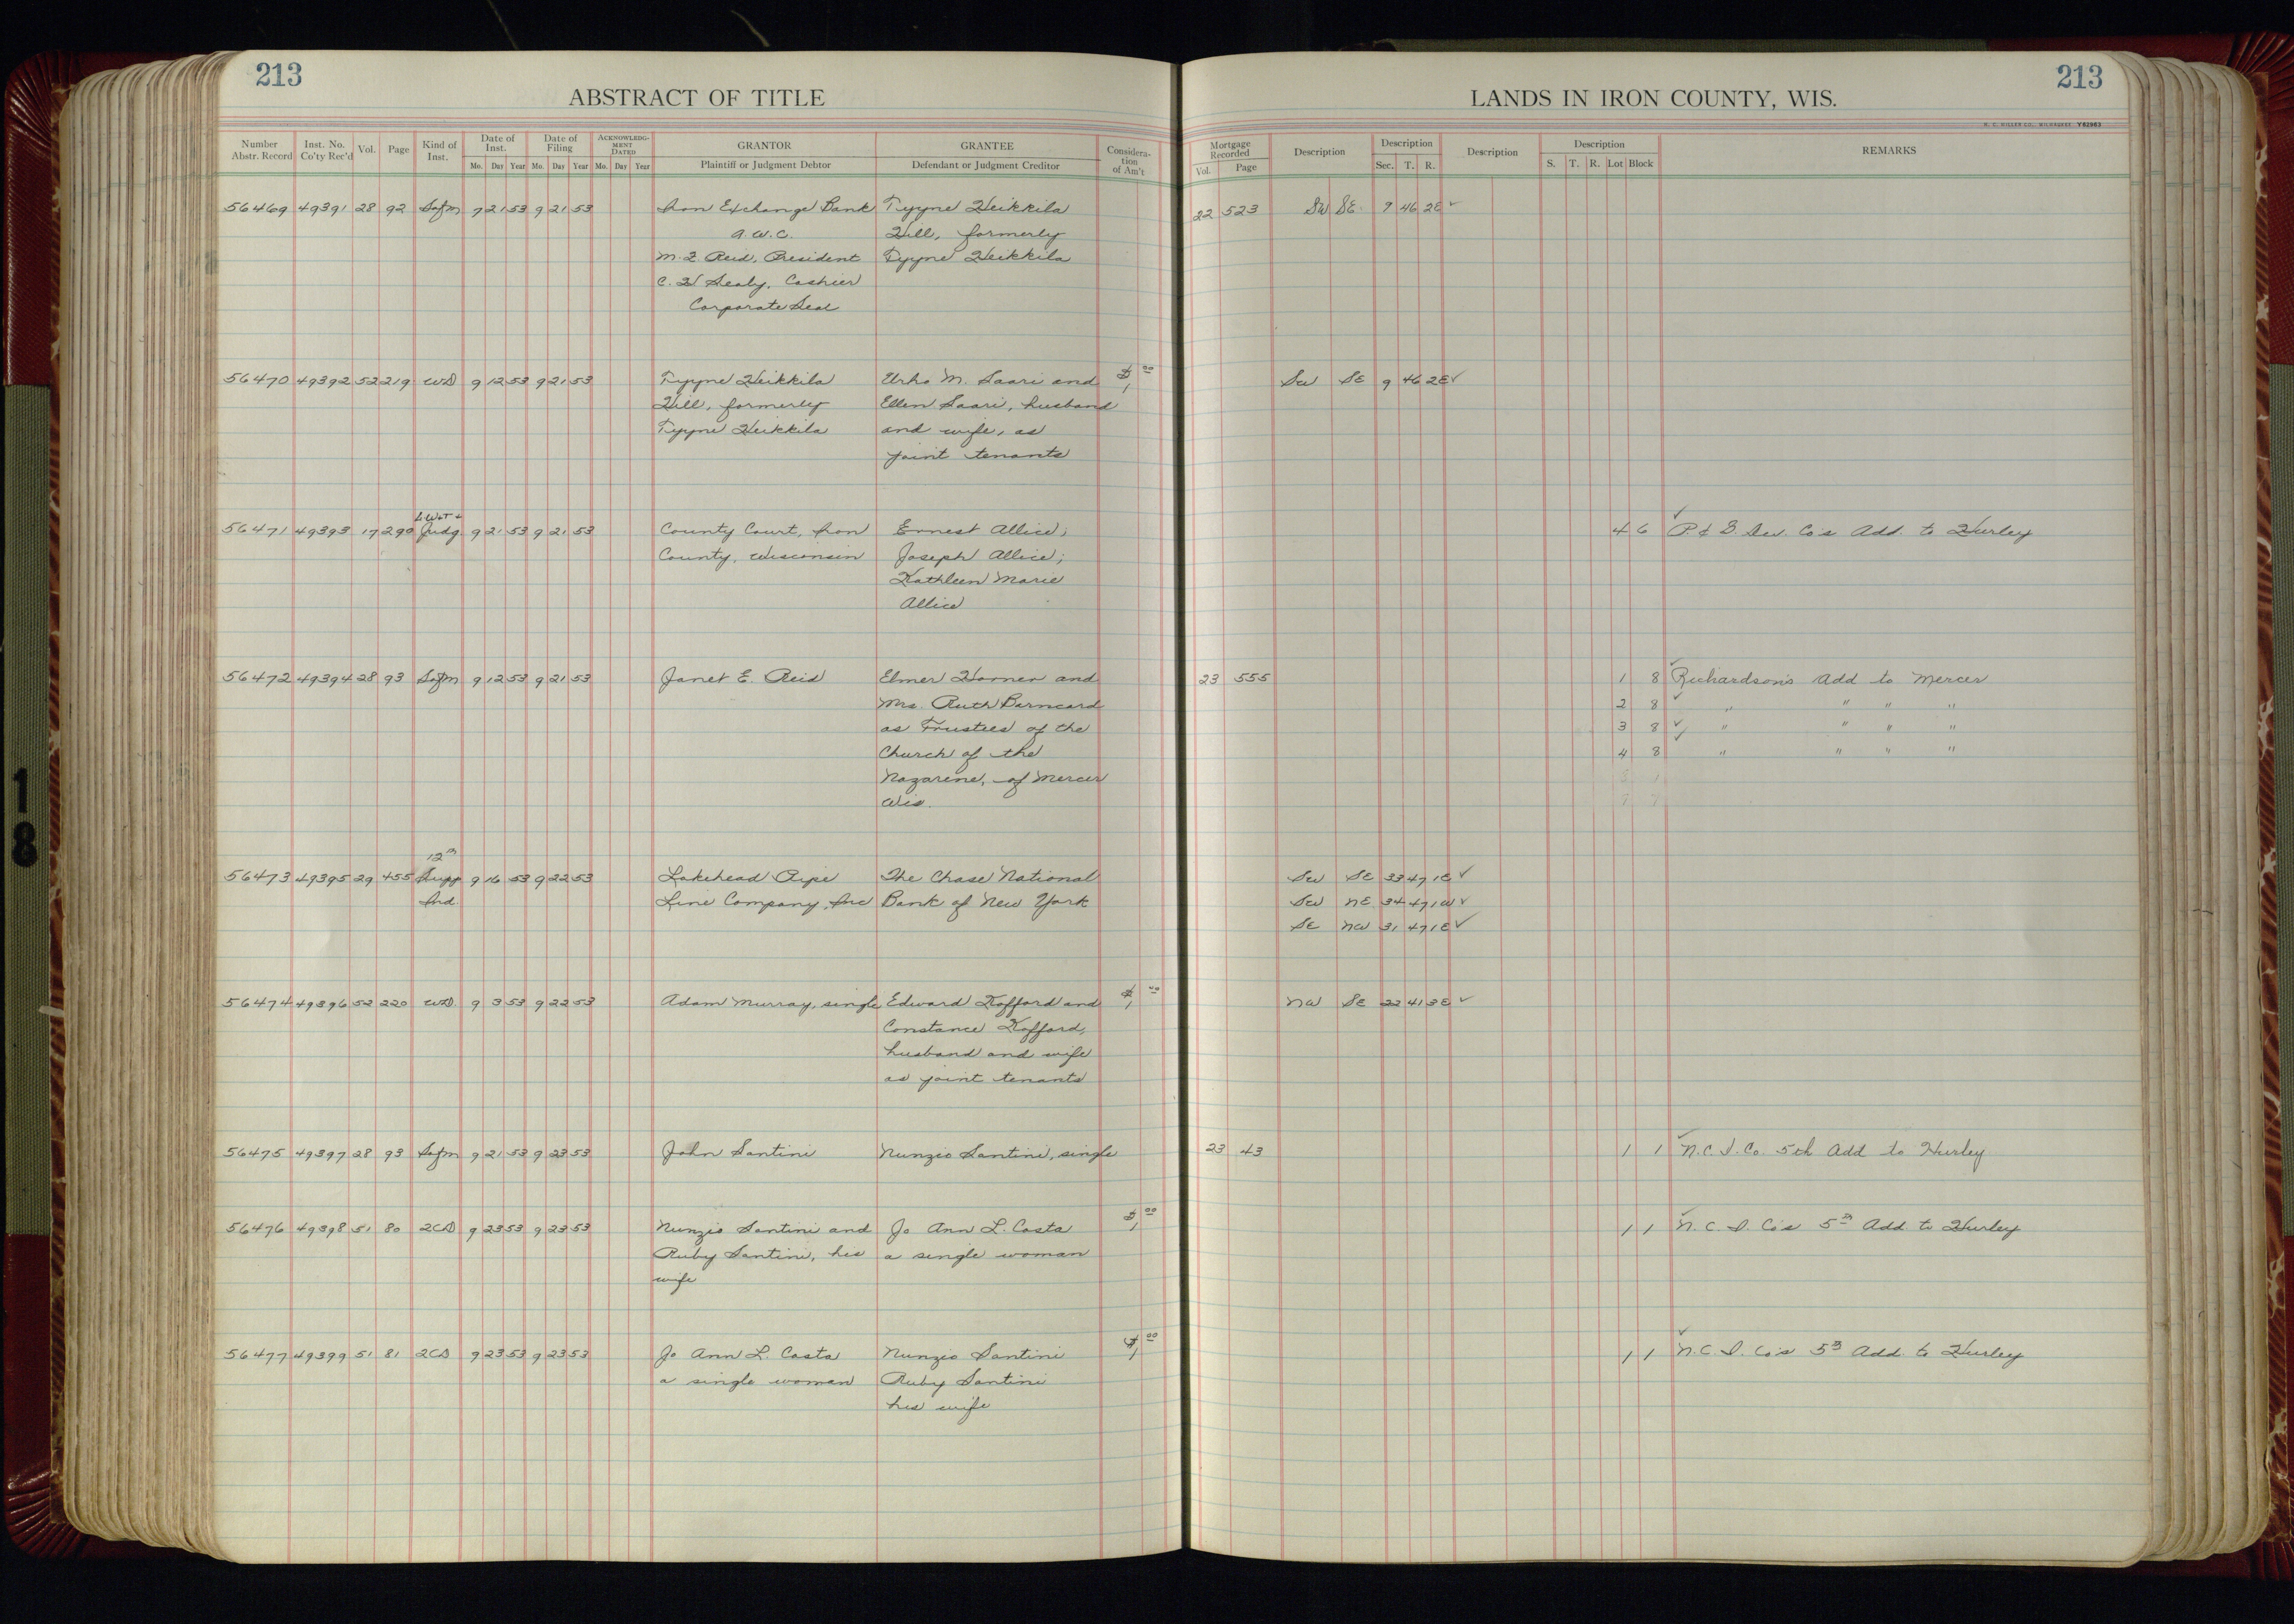 213
ABSTRACT OF TITLE
Number Abstr. Record Inst. No. Co'ty Rec'd Vol. Page Kind of Inst. Date of Inst. Mo. Day Year Date of Filing Mo. Day Year ACKNOWLEDGMENT DATED Mo. Day Year GRANTOR Plaintiff or Judgment Debtor GRANTEE Defendant or Judgment Creditor Consideration of Am't
56469 49391 28 92 Sofm 7 21 53 9 21 53 Iron Exchange Bank Tyyne Heikkila
a.w.c. Hill, formerly
M. E. Reid, President Tyyne Heikkila
C. W Sealy, Cashier
Corporate Seal
56470 49392 52 219 WD 9 12 53 9 21 53 Tyyne Heikkila Urho M. Saari and $1 00
Hill, formerly Ellen Saari, husband
Tyyne Heikkila and wife, as
joint tenants
56471 49393 17 290 Judg. 9 21 53 9 21 53 County Court, Iron Ernest Allice;
County, Wisconsin Joseph Allice;
Kathleen Marie
Allice
56472 49394 28 93 Sofm 9 12 53 9 21 53 Janet E. Reid Elmer Horner and
Mrs. Ruth Barncard
as Trustees of the
Church of the
Nazarene, of Mercer
Wis.
12th
56473 49395 29 455 Supp 9 16 53 9 22 53 Lakehead Pipe The Chase National
Ind. Line Company, Inc Bank of New York
56474 49396 52 220 WD. 9 3 53 9 22 53 Adam Murray, single Edward Kofford and $1 00
Constance Kofford,
husband and wife
as joint tenants
56475 49397 28 93 Sofm 9 21 53 9 23 53 John Santini Nunzio Santini, single
56476 49398 51 80 2CD 9 23 53 9 23 53 Nunzio Santini and Jo Ann L. Costa $1 00
Ruby Santini, his a single woman
wife
56477 49399 51 81 2CD 9 23 53 9 23 53 Jo Ann L. Costa Nunzio Santini $1 00
a single woman Ruby Santini
his wife
213
LANDS IN IRON COUNTY, WIS.
H. C. MILLER CO., MILWAUKEE V82963
Mortgage Recorded Vol. Page Description Description Sec. T. R. Description Description S. T. R. Lot Block REMARKS
22 523 SW SE 9 46 2E ✓
SW SE 9 46 2E ✓
4 6 ✓ P. & S. Dev. Co's Add. to Hurley
23 555 1 8 ✓ Richardson's Add to Mercer
2 8 ✓ " " " "
3 8 ✓ " " " "
4 8 ✓ " " " "
SW SE 33 47 1E ✓
SW NE 34 47 1W ✓
SE NW 31 47 1E ✓
NW SE 22 41 3E ✓
23 43 1 1 ✓ N.C.I. Co. 5th Add to Hurley
1 1 ✓ N. C. I. Co's 5th Add to Hurley
1 1 ✓ N. C. I. Co's 5th Add. to Hurley
18